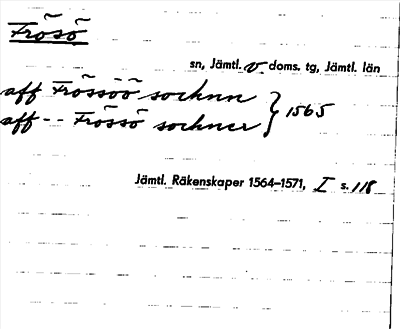 Frösö
sn, Jämtl. v. doms. tg, Jämtl. län
aff Frössöö sochnn } 1565
aff -- Frössö sochner
Jämtl. Räkenskaper 1564–1571, I s. 118